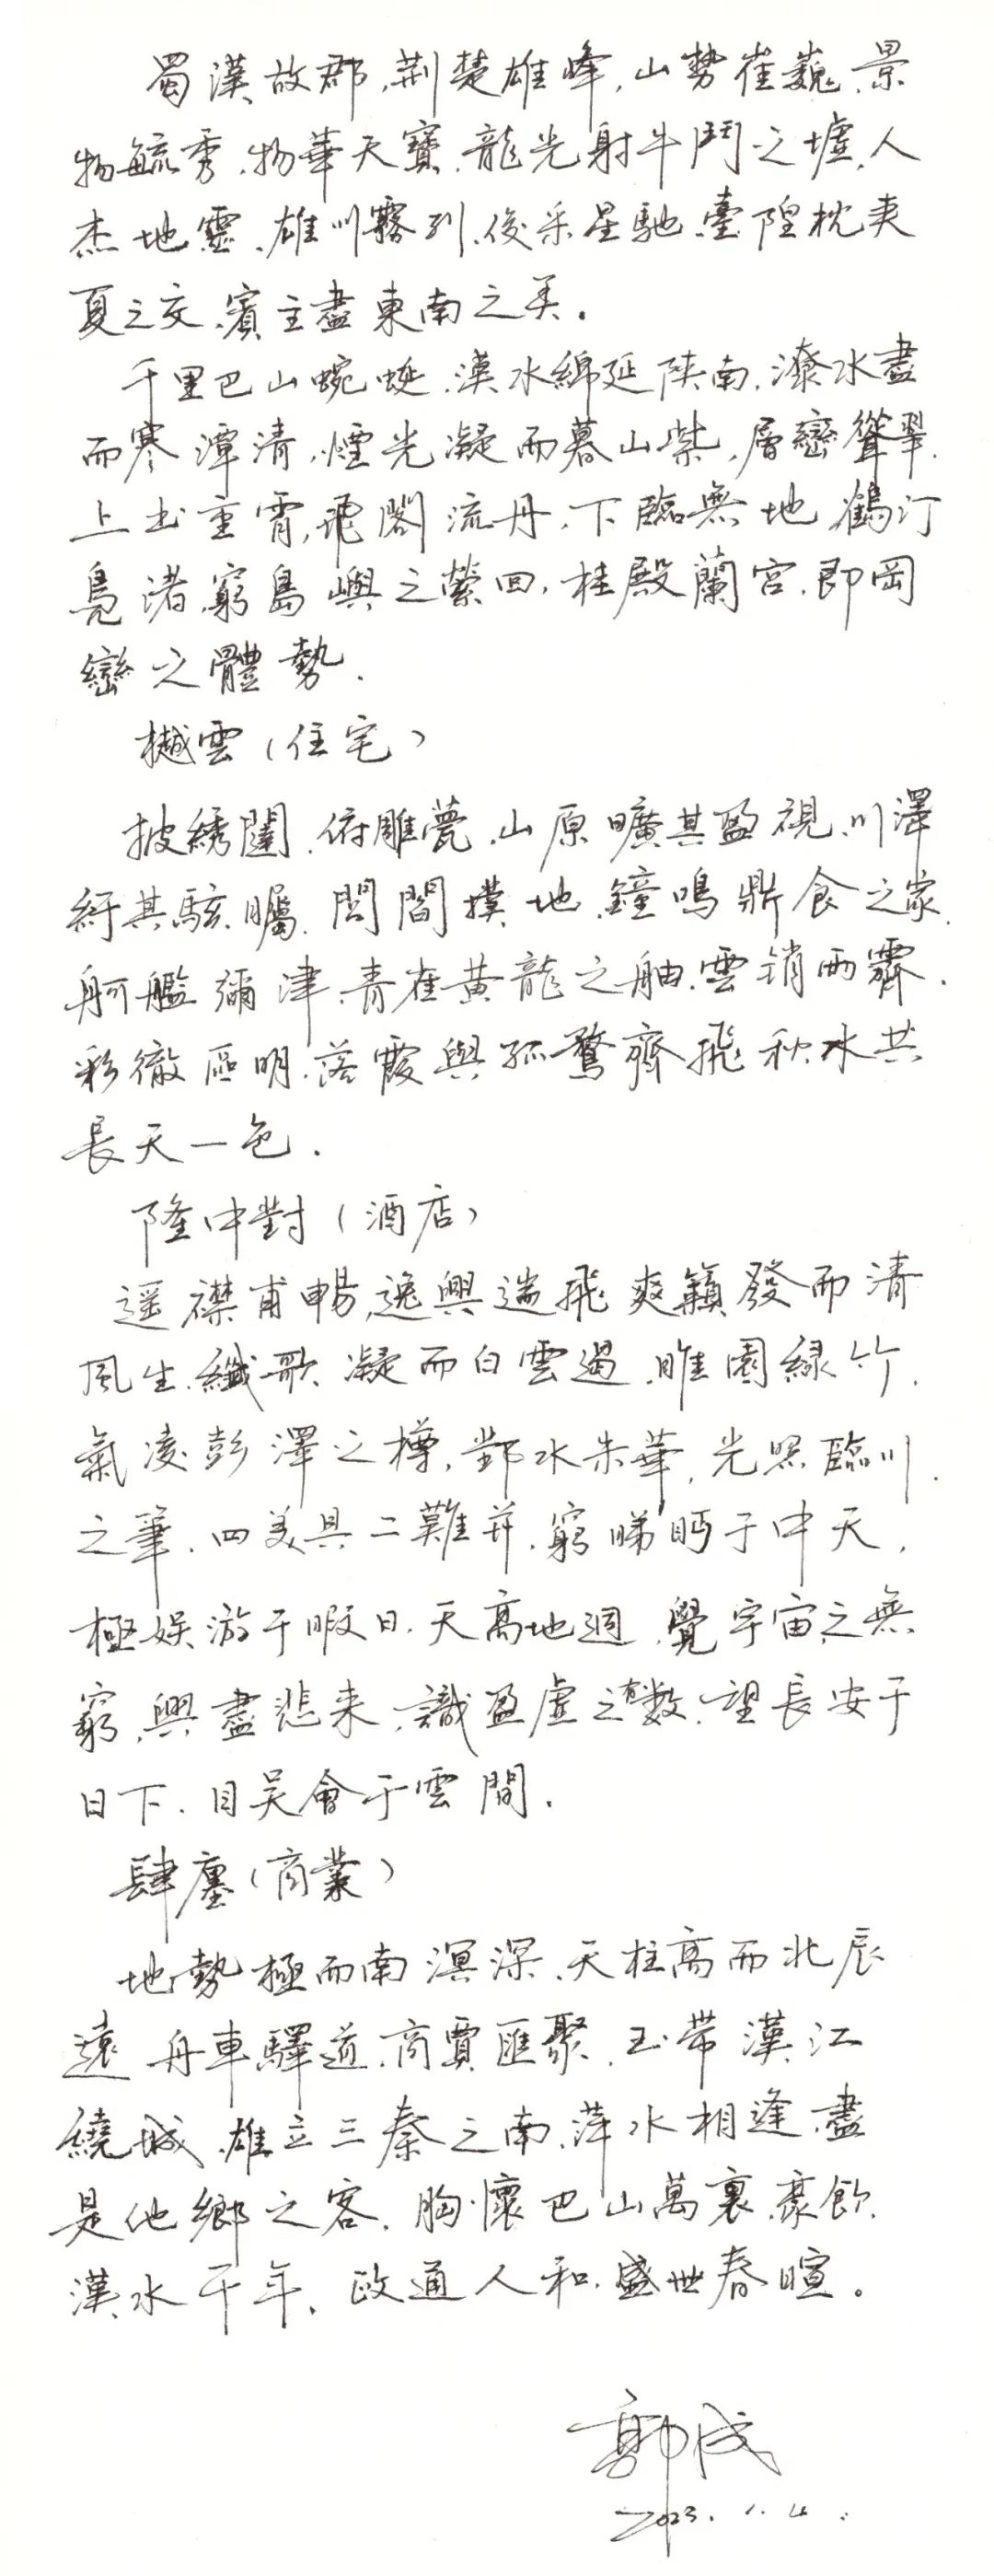 蜀漢故郡,荆楚雄峰,山勢崔巍、景
物毓秀、物華天寶、龍光射牛鬥之墟,人
杰地靈、雄川霧列、俊采星馳、臺隍枕夷
夏之交、賓主盡東南之美。
千里巴山蜿蜒、漢水綿延陝南、潦水盡
而寒潭清、煙光凝而暮山紫,層巒聳翠、
上出重霄,飛閣流丹、下臨無地、鶴汀
鳧渚、窮島嶼之縈回,桂殿蘭宮、即岡
巒之體勢.
樾雲(住宅)
披綉闥、俯雕甍、山原曠其盈視、川澤
紆其駭矚、閭閻撲地、鐘鳴鼎食之家、
舸艦彌津、青雀黄龍之舳、雲銷雨霽.
彩徹區明、落霞與孤鶩齊飛、秋水共
長天一色.
隆中對(酒店)
遥襟甫暢,逸興遄飛、爽籟發而清
風生、纖歌凝而白雲遏、睢園緑竹、
氣凌彭澤之樽、鄴水朱華,光照臨川.
之筆、四美具二難并、窮睇眄于中天,
極娱游于暇日、天高地迥、覺宇宙之無
窮、興盡悲来、識盈虚之有數、望長安于
日下、目吴會于雲間.
肆廛(商業)
地勢極而南溟深、天柱高而北辰
遠、舟車驛道、商賈匯聚、玉带漢江
繞城、雄立三秦之南、萍水相逢、盡
是他鄉之客、胸懷巴山萬裏、豪飲
漢水千年、政通人和、盛世春暄。
郭成
2023.1.4.